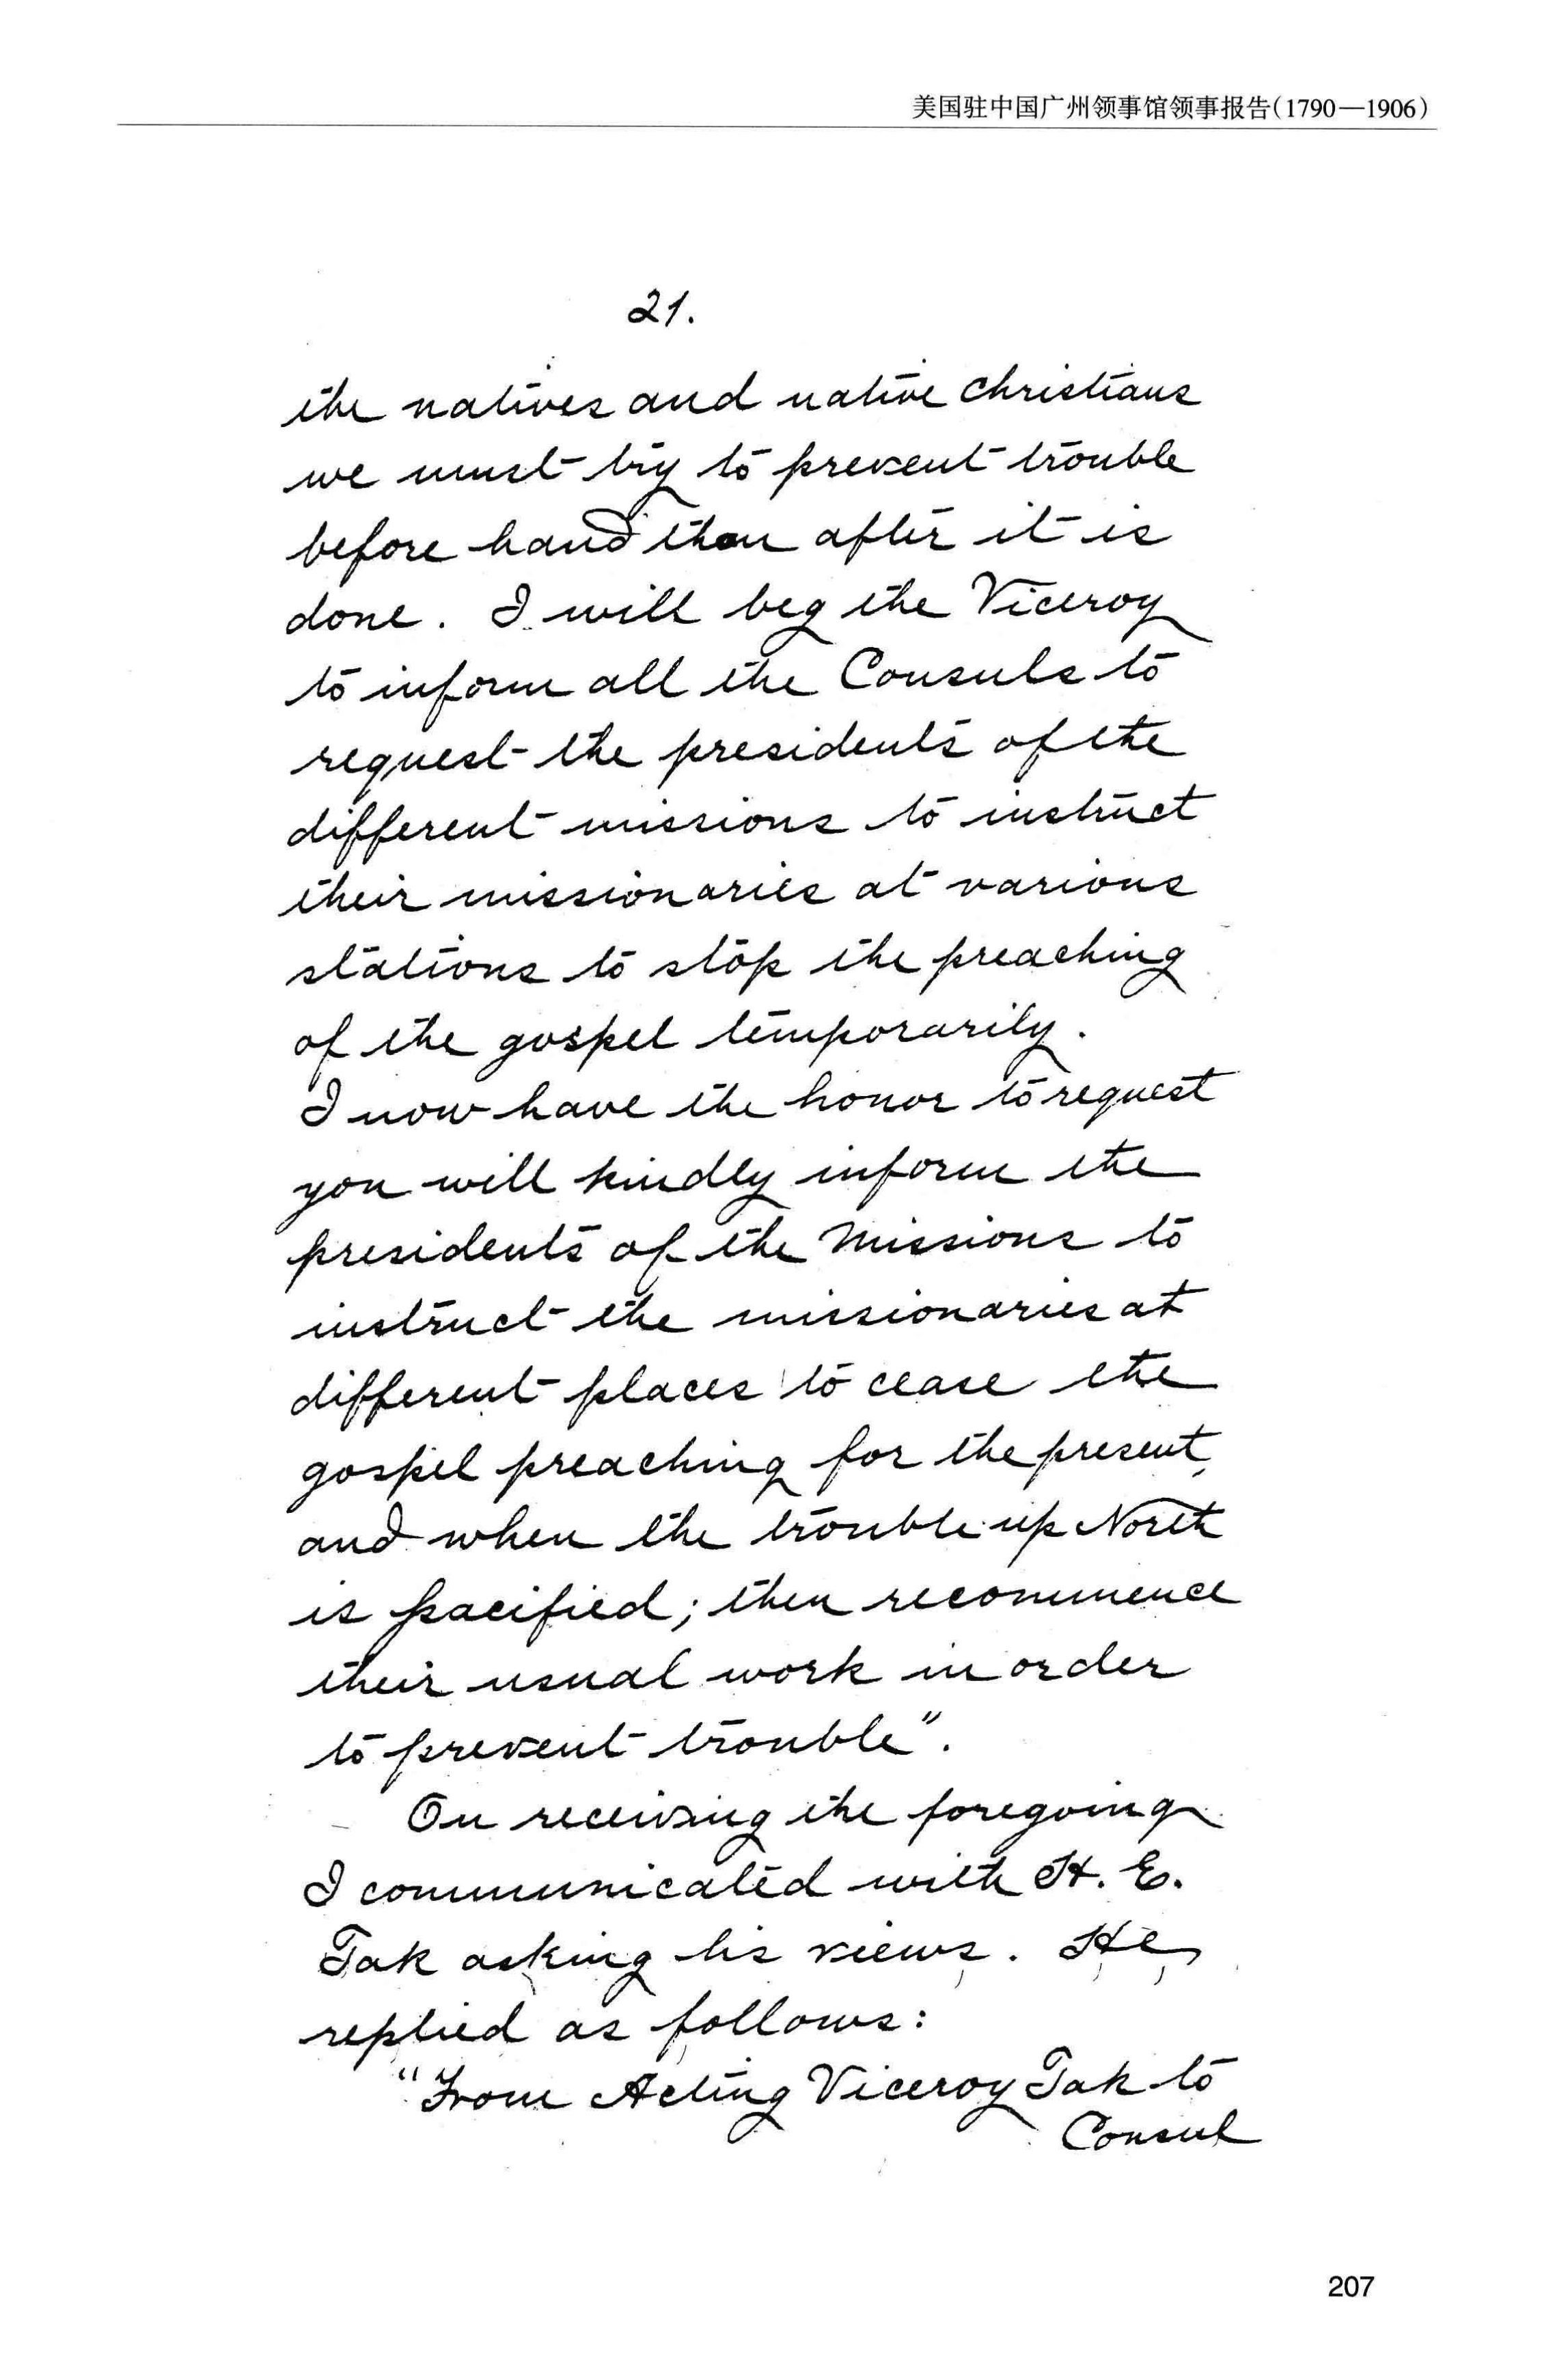 美国驻中国广州领事馆领事报告(1790—1906)
21.
the natives and native Christians
we must try to prevent trouble
before hand than after it is
done. I will beg the Viceroy
to inform all the Consuls to
request the presidents of the
different missions to instruct
their missionaries at various
stations to stop the preaching
of the gospel temporarily.
I now have the honor to request
you will kindly inform the
presidents of the Missions to
instruct the missionaries at
different places to cease the
gospel preaching for the present,
and when the trouble up North
is pacified; then recommence
their usual work in order
to prevent trouble".
On receiving the foregoing
I communicated with H. E.
Tak asking his views. He,
replied as follows:
"From Acting Viceroy Tak to
Consul
207